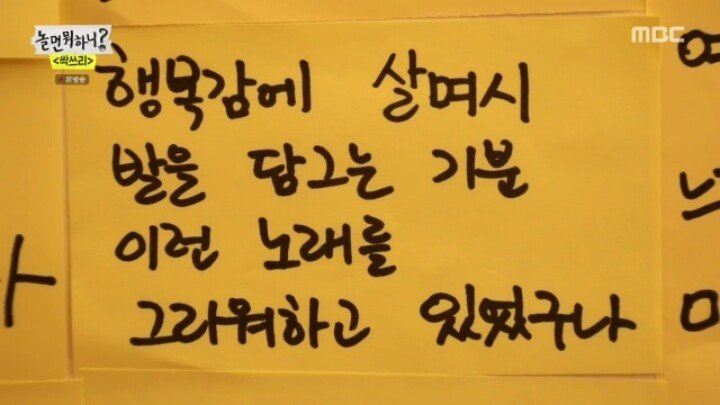 놀면뭐하니?
<싹쓰리>
본방송
MBC
행복감에 살며시
발을 담그는 기분
이런 노래를
그리워하고 있었구나